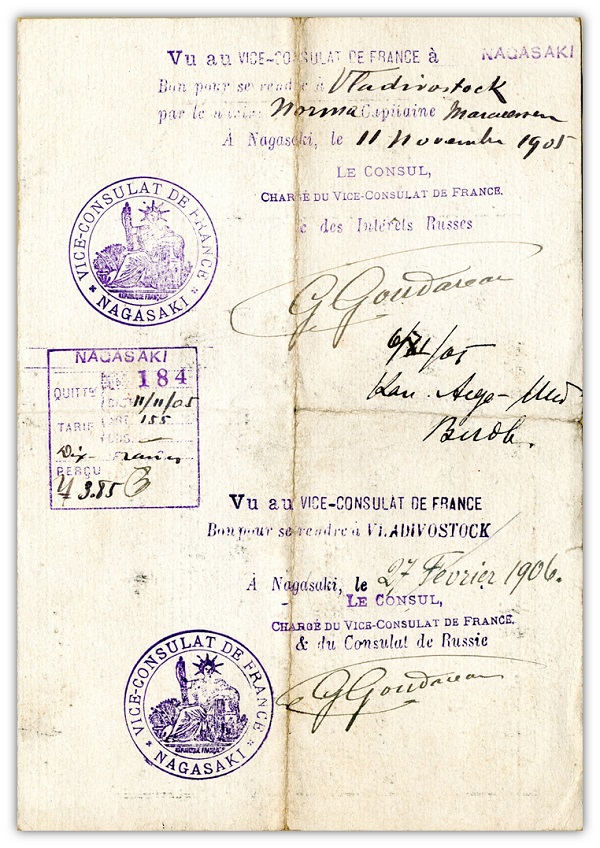 Vu au VICE-CONSULAT DE FRANCE à NAGASAKI
Bon pour se rendre à Vladivostock
par le Norma Capitaine
À Nagasaki, le 11 Novembre 1905
LE CONSUL,
CHARGÉ DU VICE-CONSULAT DE FRANCE.
& des Intérêts Russes
VICE-CONSULAT DE FRANCE
RÉPUBLIQUE FRANÇAISE
* NAGASAKI *
G Goudareau
NAGASAKI
QUITTce 184
11/11/05
TARIF ART. 155
Dix Francs
PERÇU
3.85
Vu au VICE-CONSULAT DE FRANCE
Bon pour se rendre à VLADIVOSTOCK
À Nagasaki, le 27 Février 1906.
LE CONSUL,
CHARGÉ DU VICE-CONSULAT DE FRANCE.
& du Consulat de Russie
VICE-CONSULAT DE FRANCE
RÉPUBLIQUE FRANÇAISE
* NAGASAKI *
G Goudareau